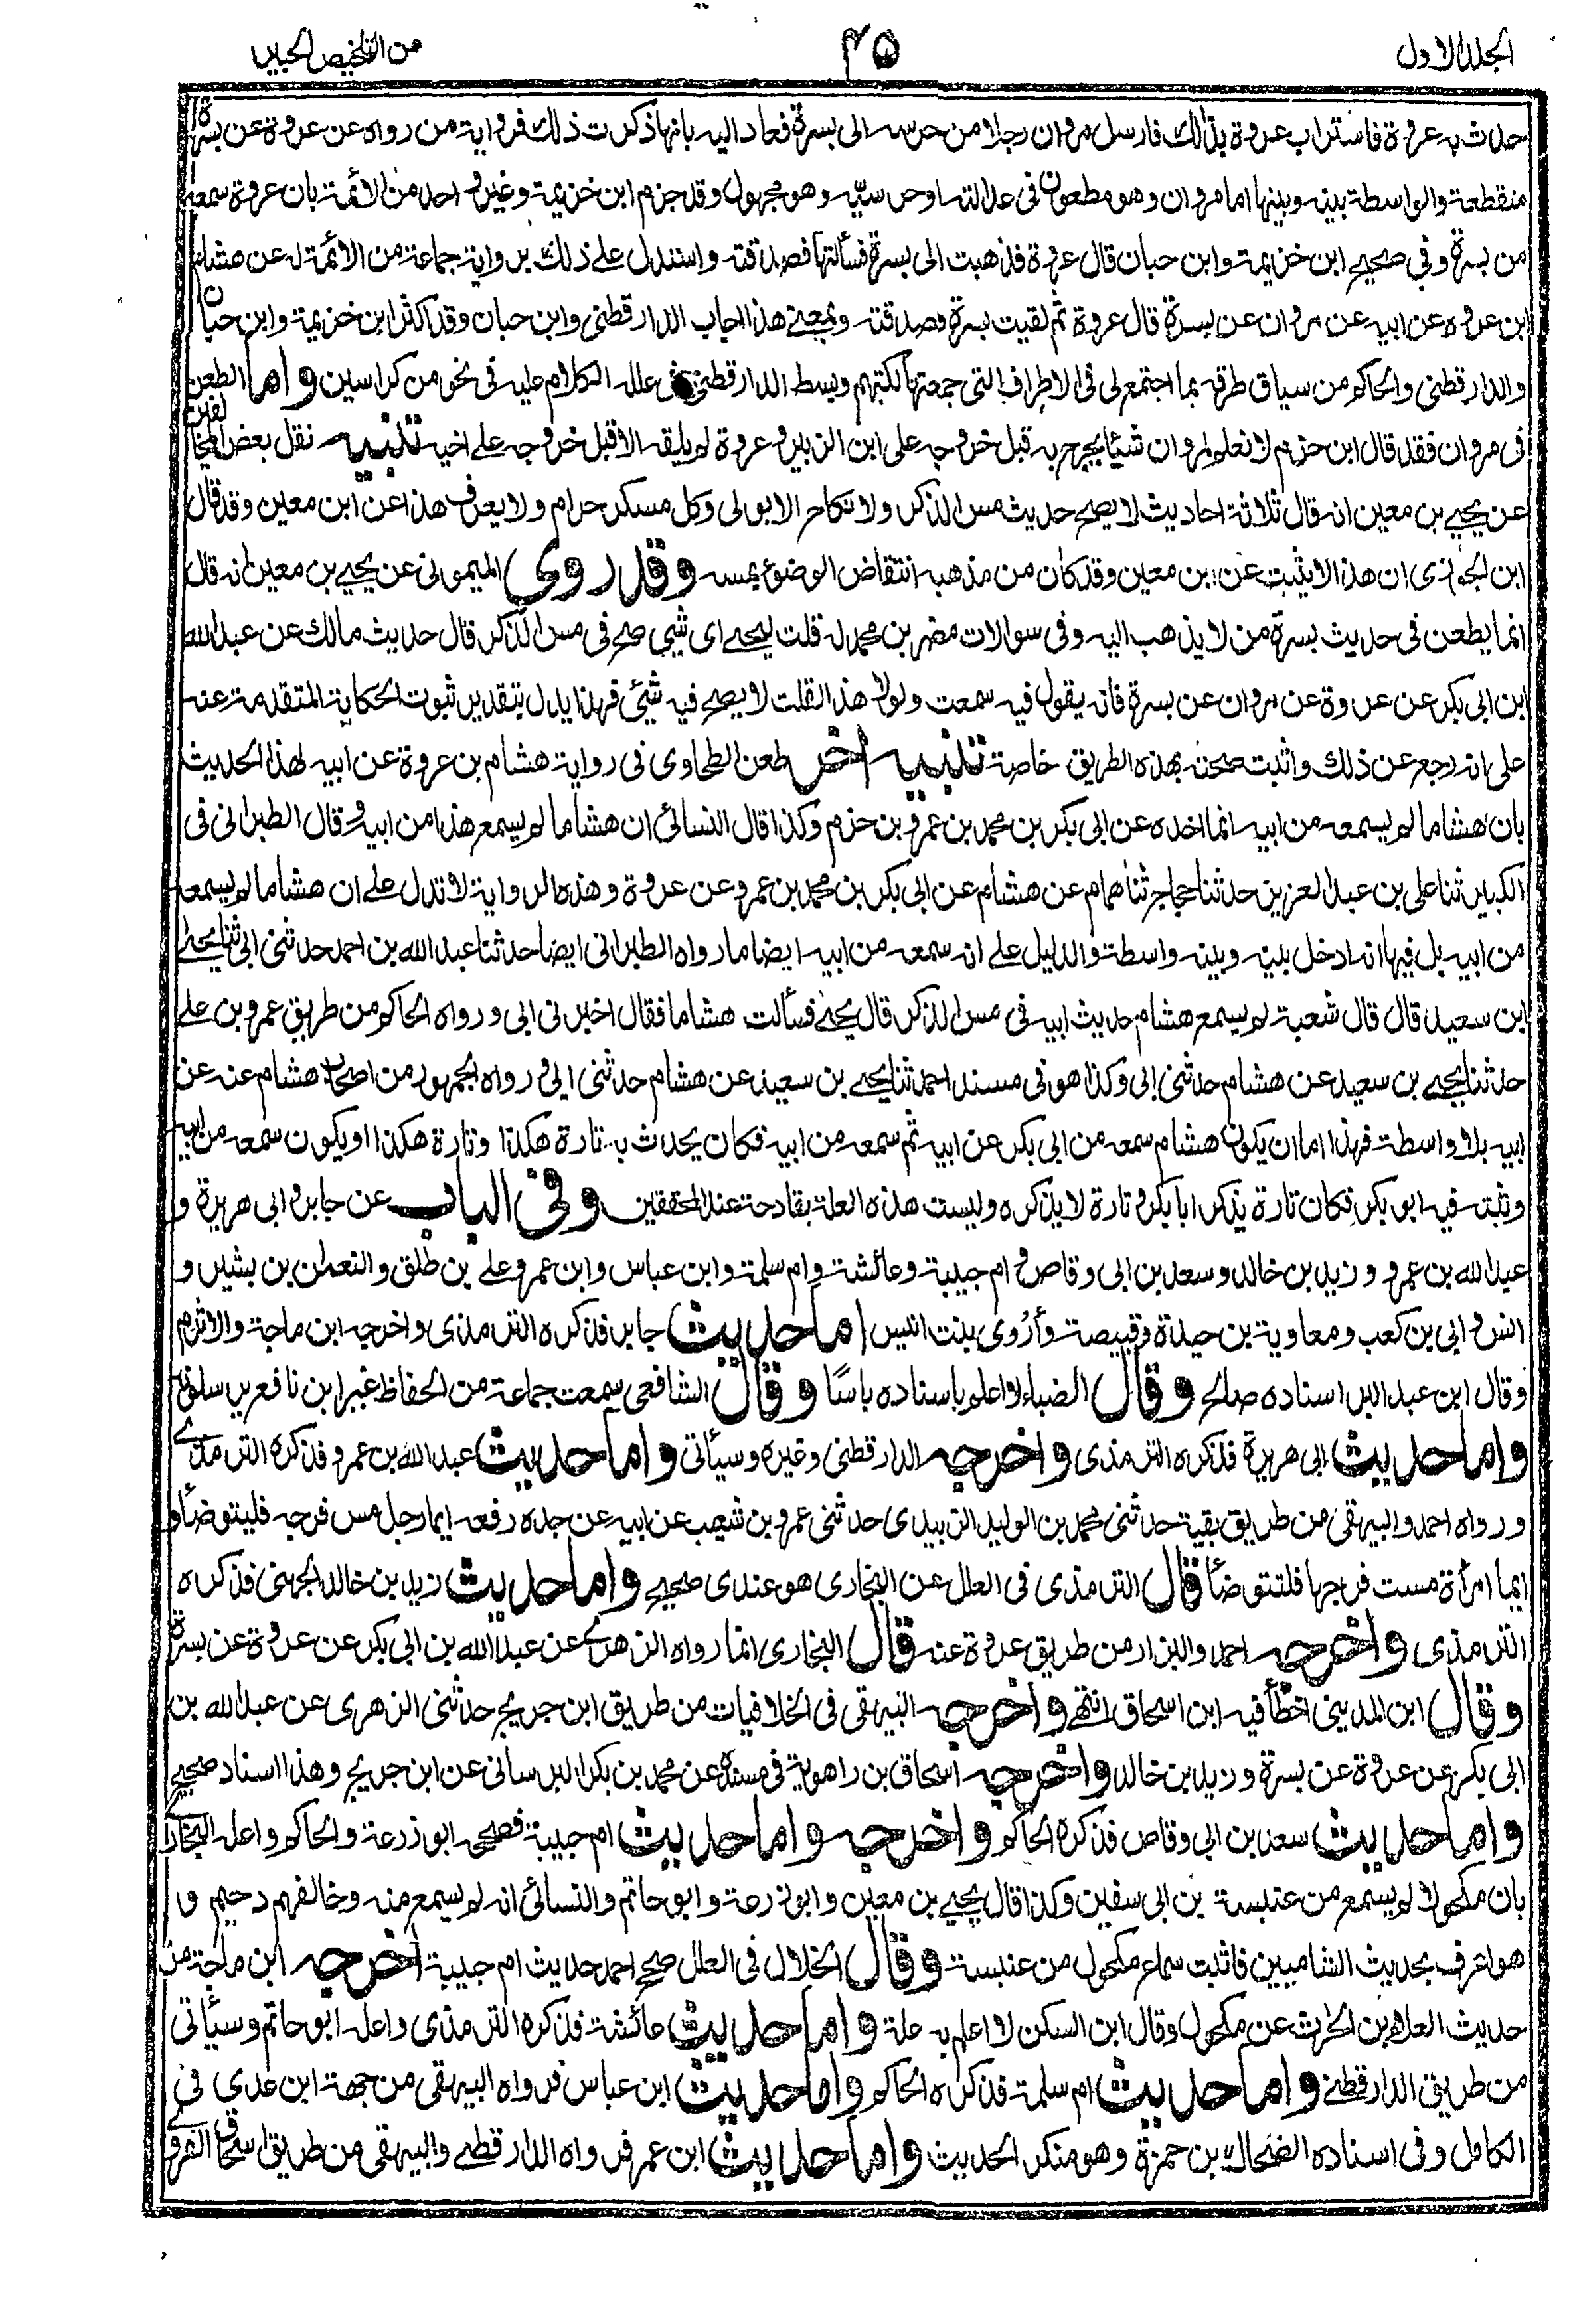 الجلد الاول
٤٥
من التلخيص الحبير
حدث به عروة فاستراب عروة بذلك فارسل مروان رجلا من حرسه الى بسرة فعاد اليه بانها ذكرت ذلك فرواية من رواه عن عروة عن بسرة
منقطعة والواسطة بينه وبينها اما مروان وهو مطعون في عدالته او حرسيه وهو مجهول وقد جزم ابن خزيمة وغير واحد من الائمة بان عروة سمعه
من بسرة وفي صحيح ابن خزيمة وابن حبان قال عروة فذهبت الى بسرة فسألتها فصدقته واستدل على ذلك برواية جماعة من الائمة له عن هشام
ابن عروه عن ابيه عن مروان عن بسرة قال عروة ثم لقيت بسرة فصدقته وبمعنى هذا اجاب الدارقطني وابن حبان وقد اكثر ابن خزيمة وابن حبان
والدارقطني والحاكم من سياق طرقه بما اجتمع لي في الاطراف التي جمعتها لكتبهم وبسط الدارقطني في علله الكلام عليه في نحو من كراسين واما الطعن
في مروان فقد قال ابن حزم لا نعلم لمروان شيئا يجرح به قبل خروجه على ابن الزبير وعروة لم يلقه الا قبل خروجه على اخيه تنبيه نقل بعض المخالفين
عن يحيى بن معين انه قال ثلاثة احاديث لا يصح حديث مس الذكر ولا نكاح الا بولي وكل مسكر حرام ولا يعرف هذا عن ابن معين وقد قال
ابن الجوزي ان هذا لا يثبت عن ابن معين وقد كان من مذهبه انتقاض الوضوء بمسه وقد روى الميموني عن يحيى بن معين انه قال
انما يطعن في حديث بسرة من لا يذهب اليه وفي سوالات مضر بن محمد له قلت ليحيى اى شيئ صح في مس الذكر قال حديث مالك عن عبد الله
ابن ابي بكر عن عروة عن مروان عن بسرة فانه يقول فيه سمعت ولولا هذا لقلت لا يصح فيه شيئ فهذا يدل بتقدير ثبوت الحكاية المتقدمة عنه
على انه رجع عن ذلك واثبت صحته بهذه الطريق خاصة تنبيه اخر طعن الطحاوى في رواية هشام بن عروة عن ابيه لهذا الحديث
بان هشاما لم يسمعه من ابيه انما اخذه عن ابي بكر بن محمد بن عمرو بن حزم وكذا قال النسائي ان هشاما لم يسمع هذا من ابيه وقال الطبراني في
الكبير ثنا علي بن عبد العزيز حدثنا حجاج ثنا همام عن هشام عن ابي بكر بن محمد بن عمرو عن عروة وهذه الرواية لا تدل على ان هشاما لم يسمعه
من ابيه بل فيها انه ادخل بينه وبينه واسطة والدليل على انه سمعه من ابيه ايضا ما رواه الطبراني ايضا حدثنا عبد الله بن احمد حدثني ابي ثنا يحيى
ابن سعيد قال قال شعبة لم يسمع هشام حديث ابيه في مس الذكر قال يحيى فسألت هشاما فقال اخبرني ابي ورواه الحاكم من طريق عمرو بن علي
حدثنا يحيى بن سعيد عن هشام حدثني ابي وكذا هو في مسند احمد ثنا يحيى بن سعيد عن هشام حدثني ابي ورواه الجمهور من اصحاب هشام عنه عن
ابيه بلا واسطة فهذا اما ان يكون هشام سمعه من ابي بكر عن ابيه ثم سمعه من ابيه فكان يحدث به تارة هكذا وتارة هكذا او يكون سمعه من ابيه
وثبته فيه ابو بكر فكان تارة يذكر ابا بكر وتارة لا يذكره وليست هذه العلة بقادحة عند المحققين وفي الباب عن جابر وابي هريرة و
عبد الله بن عمرو وزيد بن خالد وسعد بن ابي وقاص وام حبيبة وعائشة وام سلمة وابن عباس وابن عمر وعلي بن طلق والنعمان بن بشير و
انس وابي بن كعب ومعاوية بن حيدة وقبيصة وأروى بنت انيس اما حديث جابر فذكره الترمذي واخرجه ابن ماجة والاثرم
وقال ابن عبد البر اسناده صالح وقال الضياء لا اعلم باسناده باسًا وقال الشافعي سمعت جماعة من الحفاظ غير ابن نافع يرسلونه
واما حديث ابي هريرة فذكره الترمذي واخرجه الدارقطني وغيره وسيأتي واما حديث عبد الله بن عمرو فذكره الترمذي
ورواه احمد والبيهقي من طريق بقية حدثني محمد بن الوليد الزبيدي حدثني عمرو بن شعيب عن ابيه عن جده رفعه ايما رجل مس فرجه فليتوضأ و
ايما امرأة مست فرجها فلتتوضأ قال الترمذي في العلل عن البخاري هو عندي صحيح واما حديث زيد بن خالد الجهني فذكره
الترمذي واخرجه احمد والبزار من طريق عروة عنه قال البخاري انما رواه الزهري عن عبد الله بن ابي بكر عن عروة عن بسرة
وقال ابن المديني اخطأ فيه ابن اسحاق انتهى واخرجه البيهقي في الخلافيات من طريق ابن جريج حدثني الزهري عن عبد الله بن
ابي بكر عن عروة عن بسرة وزيد بن خالد واخرجه اسحاق بن راهوية في مسنده عن محمد بن بكر البرساني عن ابن جريج وهذا اسناد صحيح
واما حديث سعد بن ابي وقاص فذكره الحاكم واخرجه واما حديث ام حبيبة فصححه ابو زرعة والحاكم واعله البخاري
بان مكحولا لم يسمع من عنبسة بن ابي سفين وكذا قال يحيى بن معين وابو زرعة وابو حاتم والنسائي انه لم يسمع منه وخالفهم دحيم و
هو اعرف بحديث الشاميين فاثبت سماع مكحول من عنبسة وقال الخلال في العلل صحح احمد حديث ام حبيبة اخرجه ابن ماجة من
حديث العلاء بن الحرث عن مكحول وقال ابن السكن لا اعلم به علة واما حديث عائشة فذكره الترمذي واعله ابو حاتم وسيأتي
من طريق الدارقطني واما حديث ام سلمة فذكره الحاكم واما حديث ابن عباس فرواه البيهقي من جهة ابن عدي في
الكامل وفي اسناده الضحاك بن حمزة وهو منكر الحديث واما حديث ابن عمر فرواه الدارقطني والبيهقي من طريق اسحاق الفروي